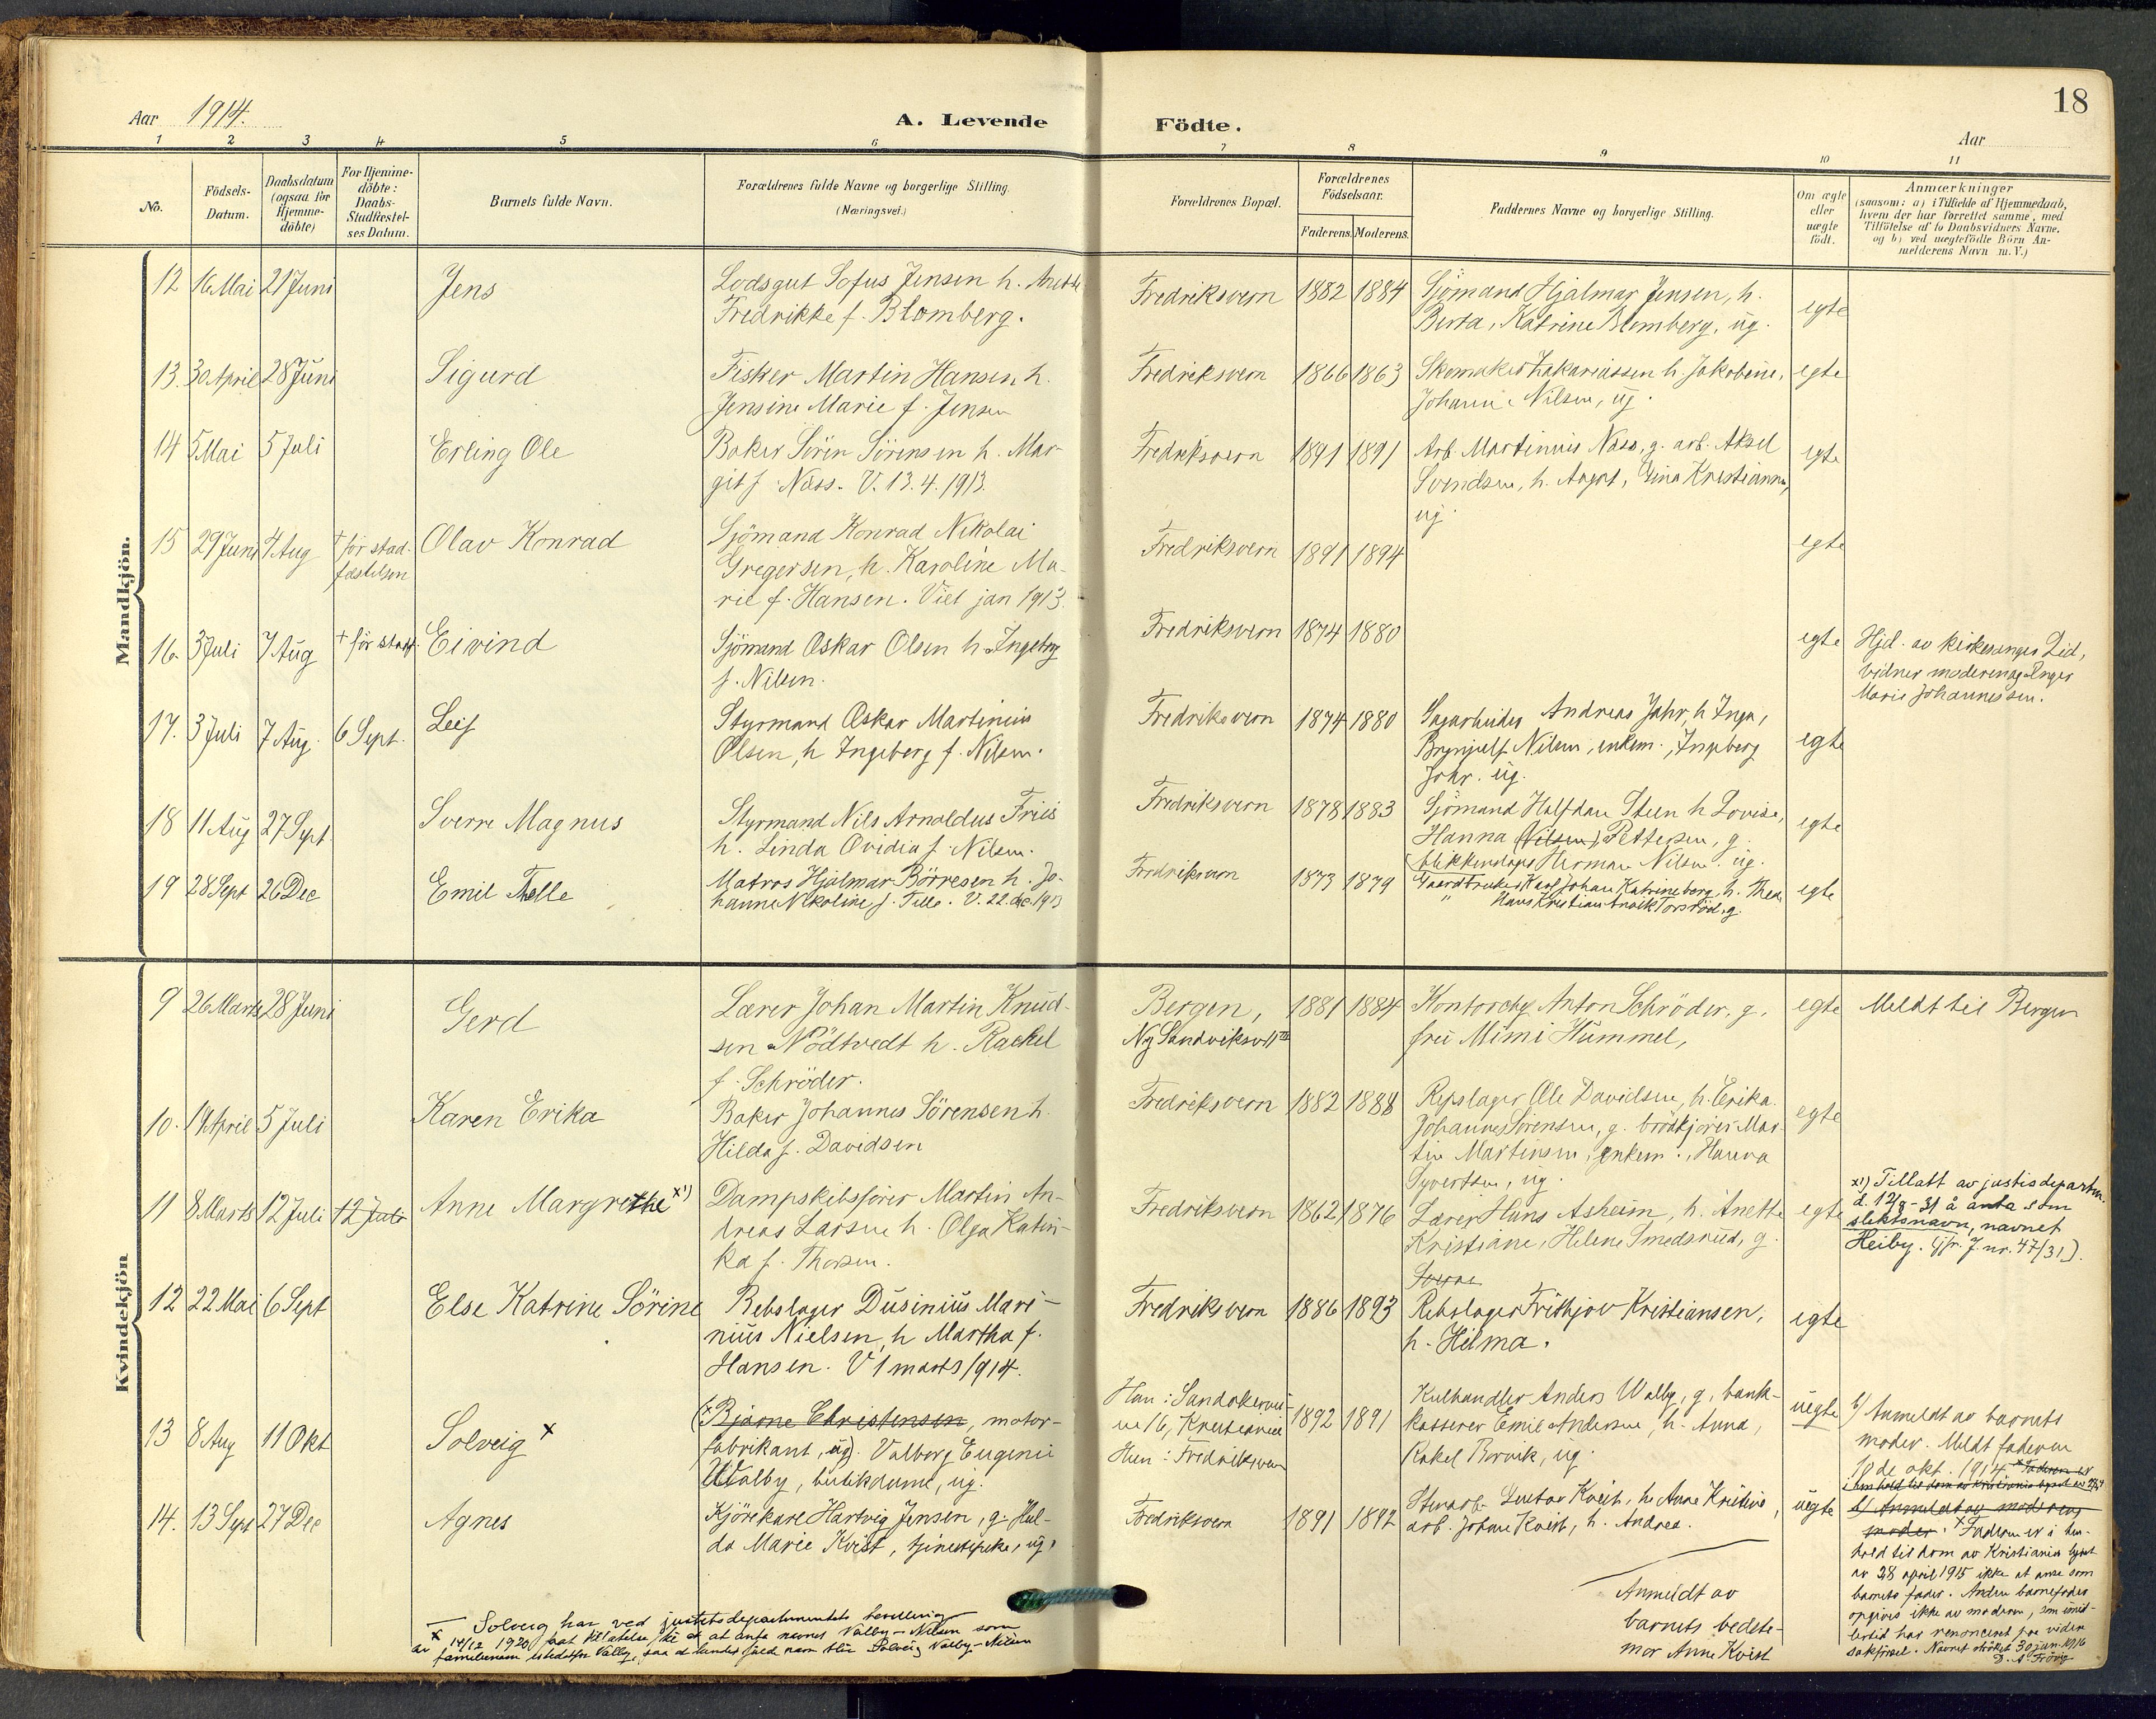 18
Aar 1914.
A. Levende Födte.
Aar
1 2 3 4 5 6 7 8 9 10 11
No.
Födsels-Datum.
Daabsdatum (ogsaa for Hjemme-döbte)
For Hjemme-döbte: Daabs-Stadfæstel-ses Datum.
Barnets fulde Navn.
Forældrenes fulde Navne og borgerlige Stilling.
(Næringsvei.)
Forældrenes Bopæl.
Forældrenes Födselsaar.
Faderens. Moderens.
Faddernes Navne og borgerlige Stilling.
Om ægte eller uægte födt.
Anmærkninger
(saasom: a) i Tilfælde af Hjemmedaab,
hvem der har forrettet samme, med
Tilföielse af to Daabsvidners Navne,
og b) ved uegtefödte Börn An-
melderens Navn m.V.)
Mandkjön.
12 16 Mai 21 Juni Jens
Lodsgut Sofus Jensen h. Anette
Fredrikke f. Blomberg.
Fredriksvern 1882 1884
Sjömand Hjalmar Jensen, h.
Berta, Katrine Blomberg, ug.
egte
13. 30 April 28 Juni Sigurd
Fisker Martin Hansen h.
Jensine Marie f. Jensen
Fredriksvern 1866 1863
Skomaker Zakariassen h. Jakobine,
Johanne Nilsen, ug.
egte
14 5 Mai 5 Juli Erling Ole
Baker Sören Sörensen h. Mar-
git f. Næss. V. 13.4.1913.
Fredriksvern 1891 1891
Arb. Martinius Næss, g. arb. Aksel
Svendsen, h. Aagot, Gina Kristianne,
ug.
egte
15 29 Juni 4 Aug † för stad-
fæstelsen
Olav Konrad
Sjömand Konrad Nikolai
Gregersen, h. Karoline Ma-
rie f. Hansen. Viet jan 1913.
Fredriksvern 1891 1894
egte
16. 3 Juli 7 Aug † för stadf. Eivind
Sjömand Oskar Olsen h. Ingeborg
f. Nilsen.
Fredriksvern 1874 1880
egte
Hjd. av kirkesanger Lid,
vidner moderen og Inger
Marie Johannessen.
17. 3 Juli 7 Aug. 6 Sept. Leif
Styrmand Oskar Martinius
Olsen, h Ingeborg f. Nilsen.
Fredriksvern 1874 1880
Sagarbeider Andreas Jahr, h Inga,
Brynjulf Nilsen, enkem., Ingeborg
Jahr. ug.
egte
18 11 Aug 27 Sept Sverre Magnus
Styrmand Nils Arnoldus Friis
h. Linda Ovidia f. Nilsen.
Fredriksvern 1878 1883
Sjömand Halfdan Steen h Lovise,
Hanna (Nilsen) Pettersen, g.
blikkenslager Herman Nilsen ug.
egte
19 28 Sept 26 Dec Emil Telle
Matros Hjalmar Börresen h. Jo-
hanne Nikoline f. Telle. V. 22. dec 1913
Fredriksvern 1873 1879
Gaardbruker Karl Johan Katrineborg, h. Thea
" Hans Kristian Anvik Torsröd, g.
egte
Kvindekjön
9 26 Marts 28 Juni Gerd
Lærer Johan Martin Knud-
sen Nödtvedt h. Rackel
f. Schröder.
Bergen,
Ny Sandviksv 11
1881 1884
Kontorchef Anton Schröder, g.
fru Mimi Hummel,
egte
Meldt til Bergen
10. 14 April 5 Juli Karen Erika
Baker Johannes Sörensen h.
Hilda f. Davidsen
Fredriksvern 1882 1888
Repslager Ole Davidsen, h. Erika.
Johannes Sörensen, g. brödkjörer Mar-
tin Martinsen, enkem., Hanna
Syvertsen, ug.
egte
11 8 Marts 12 Juli 12 Juli Anne Margrethe x1)
Dampskibsförer Martin An-
dreas Larsen h. Olga Katin-
ka f. Thorsen.
Fredriksvern 1862 1876
Lærer Hans Asheim, h. Anette
Kristiane, Helene Smedsrud, g.
egte
x1) Tillatt av justisdepartm.
d. 12/8-31 å anta som
slektsnavn, navnet
Heiby. (jfr. J. nr. 47/31).
12 22 Mai 6 Sept Else Katrine Sörine
Rebslager Dusinius Mari-
nius Nielsen, h Martha f.
Hansen. V 1 marts 1914.
Fredriksvern 1886 1893
Rebslager Frithjov Kristiansen,
h. Hilma.
egte
13 8 Aug 11 Okt Solveig x
(x Bjarne Christensen, motor-
fabrikant, ug). Valborg Eugenie
Walby, butikdame, ug.
Han: Sandakervei-
en 16, Kristiania
Hun: Fredriksvern
1892 1891
Kulhandler Anders Walby, g, bank-
kasserer Emil Andersen, h. Anna,
Rakel Borvik, ug.
uegte
b) Anmeldt av barnets
moder. Meldt faderen
18de okt. 1914
14. 13 Sept 27 Dec Agnes
Kjörekarl Hartvig Jensen, g. Hul-
da Marie Kvist, tjenestepike, ug.
Fredriksvern 1891 1892
Stenarb. Gustav Kvist, h. Anna Kristine,
arb. Johan Kvist, h. Andrea.
uegte
b) Anmeldt av moderens
moder. x Faderen er i hen-
hold til dom av Kristiania byret
av 28 april 1915 ikke at anse som
barnets fader. Anden barnefader
opgives ikke av moderen, som imid-
lertid har renonceret paa videre
sakförsel. Navnet ströket 30 juni 1916
D. A. Frövig
Anmeldt av
barnets bedste-
mor Anne Kvist
x Solveig har ved justisdepartementets bevilling
av 14/12 1920 faat tillatelse til at anta navnet Valby-Nilsen som
familienavn istedetfor Valby, saa at hendes fulde navn blir Solveig Valby-Nilsen